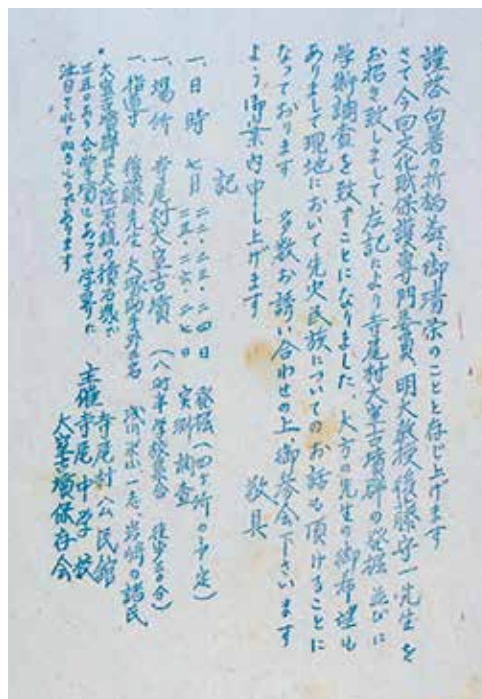 謹啓 向暑の折柄益々御清栄のことと存じ上げます
さて今回文化財保護専門委員、明大教授後藤守一先生を
お招き致しまして、左記により寺尾村大室古墳群の発掘並びに
学術調査を致すことになりました、大方の先生の御希望も
ありまして現地において先史民族についてのお話も頂けることに
なっております 多数お誘い合わせの上、御参会下さいます
よう御案内申し上げます
敬具
記
一、日時 七月 二二・二三・二四日 発掘(四ヶ所の予定)
二五・二六・二七日 実測調査
一、場所 寺尾村大室古墳 (八時半学校集合
一、指導 後藤先生 大塚助手外五名
の諸氏
大室古墳群は
あって学界に
注目されて
主催 寺尾村公民館
寺尾中学校
大室古墳保存会